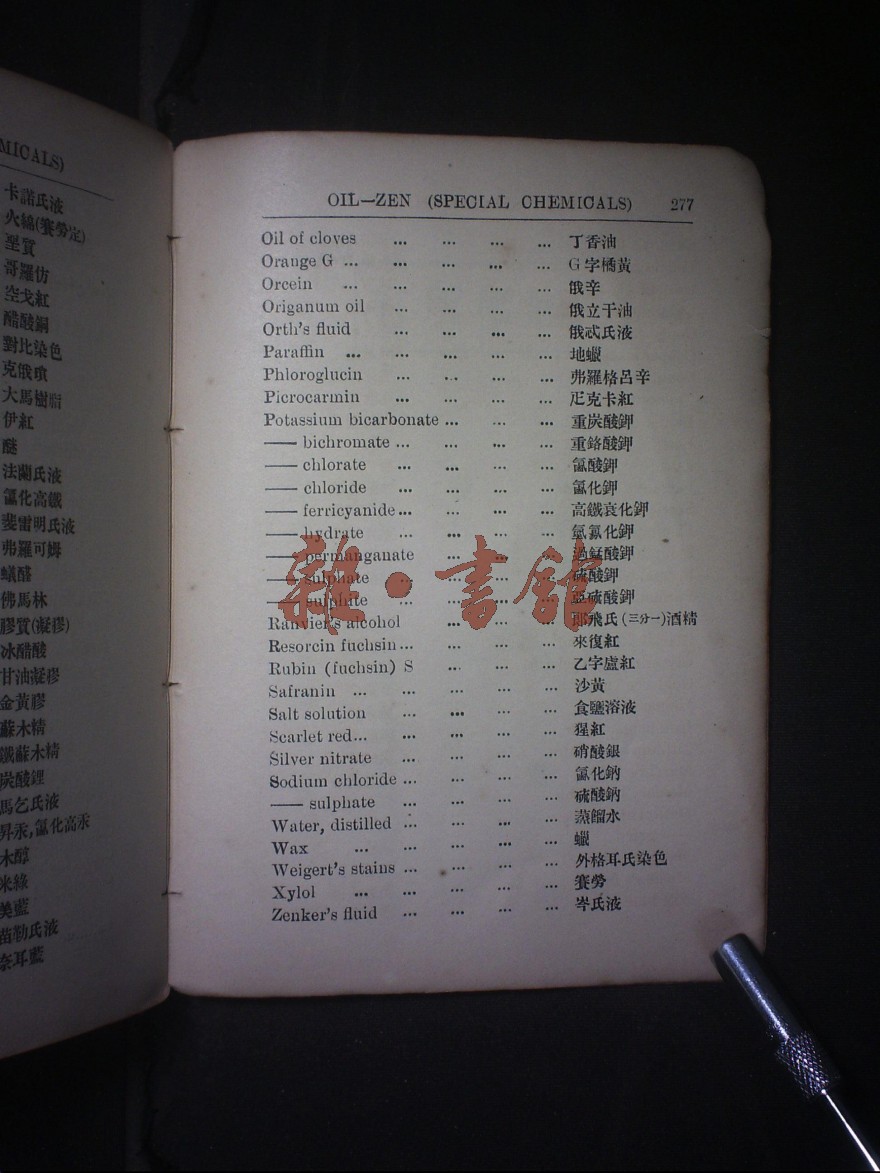 MICALS)
卡諾氏液
火綿(賽勞定)
堊質
哥羅仿
空戈紅
醋酸銅
對比染色
克俄瑣
大馬樹脂
伊紅
醚
法蘭氏液
氯化高鐵
斐雷明氏液
弗羅可姆
蟻醛
佛馬林
膠質(凝膠)
冰醋酸
甘油凝膠
金黃膠
蘇木精
鐵蘇木精
炭酸鋰
馬乞氏液
昇汞,氯化高汞
木醇
米綠
美藍
苗勒氏液
奈耳藍
OIL—ZEN (SPECIAL CHEMICALS) 277
Oil of cloves ... ... ... ... 丁香油
Orange G ... ... ... ... ... G字橘黃
Orcein ... ... ... ... ... 俄辛
Origanum oil ... ... ... ... 俄立干油
Orth's fluid ... ... ... ... 俄忒氏液
Paraffin ... ... ... ... ... 地蠟
Phloroglucin ... ... ... ... 弗羅格呂辛
Picrocarmin ... ... ... ... 疋克卡紅
Potassium bicarbonate ... ... ... 重炭酸鉀
—— bichromate ... ... ... ... 重鉻酸鉀
—— chlorate ... ... ... ... 氯酸鉀
—— chloride ... ... ... ... 氯化鉀
—— ferricyanide ... ... ... ... 高鐵衰化鉀
—— hydrate ... ... ... 氫氧化鉀
—— permanganate ... ... ... 過錳酸鉀
—— sulphate ... ... ... ... 硫酸鉀
—— sulphite ... ... ... ... 亞硫酸鉀
Ranvier's alcohol ... ... ... 郎飛氏(三分一)酒精
Resorcin fuchsin ... ... ... ... 來復紅
Rubin (fuchsin) S ... ... ... 乙字盧紅
Safranin ... ... ... ... ... 沙黃
Salt solution ... ... ... ... 食鹽溶液
Scarlet red ... ... ... ... ... 猩紅
Silver nitrate ... ... ... ... 硝酸銀
Sodium chloride ... ... ... ... 氯化鈉
—— sulphate ... ... ... ... 硫酸鈉
Water, distilled ... ... ... ... 蒸餾水
Wax ... ... ... ... ... 蠟
Weigert's stains ... ... ... ... 外格耳氏染色
Xylol ... ... ... ... ... 賽勞
Zenker's fluid ... ... ... ... 岑氏液
雜·書館